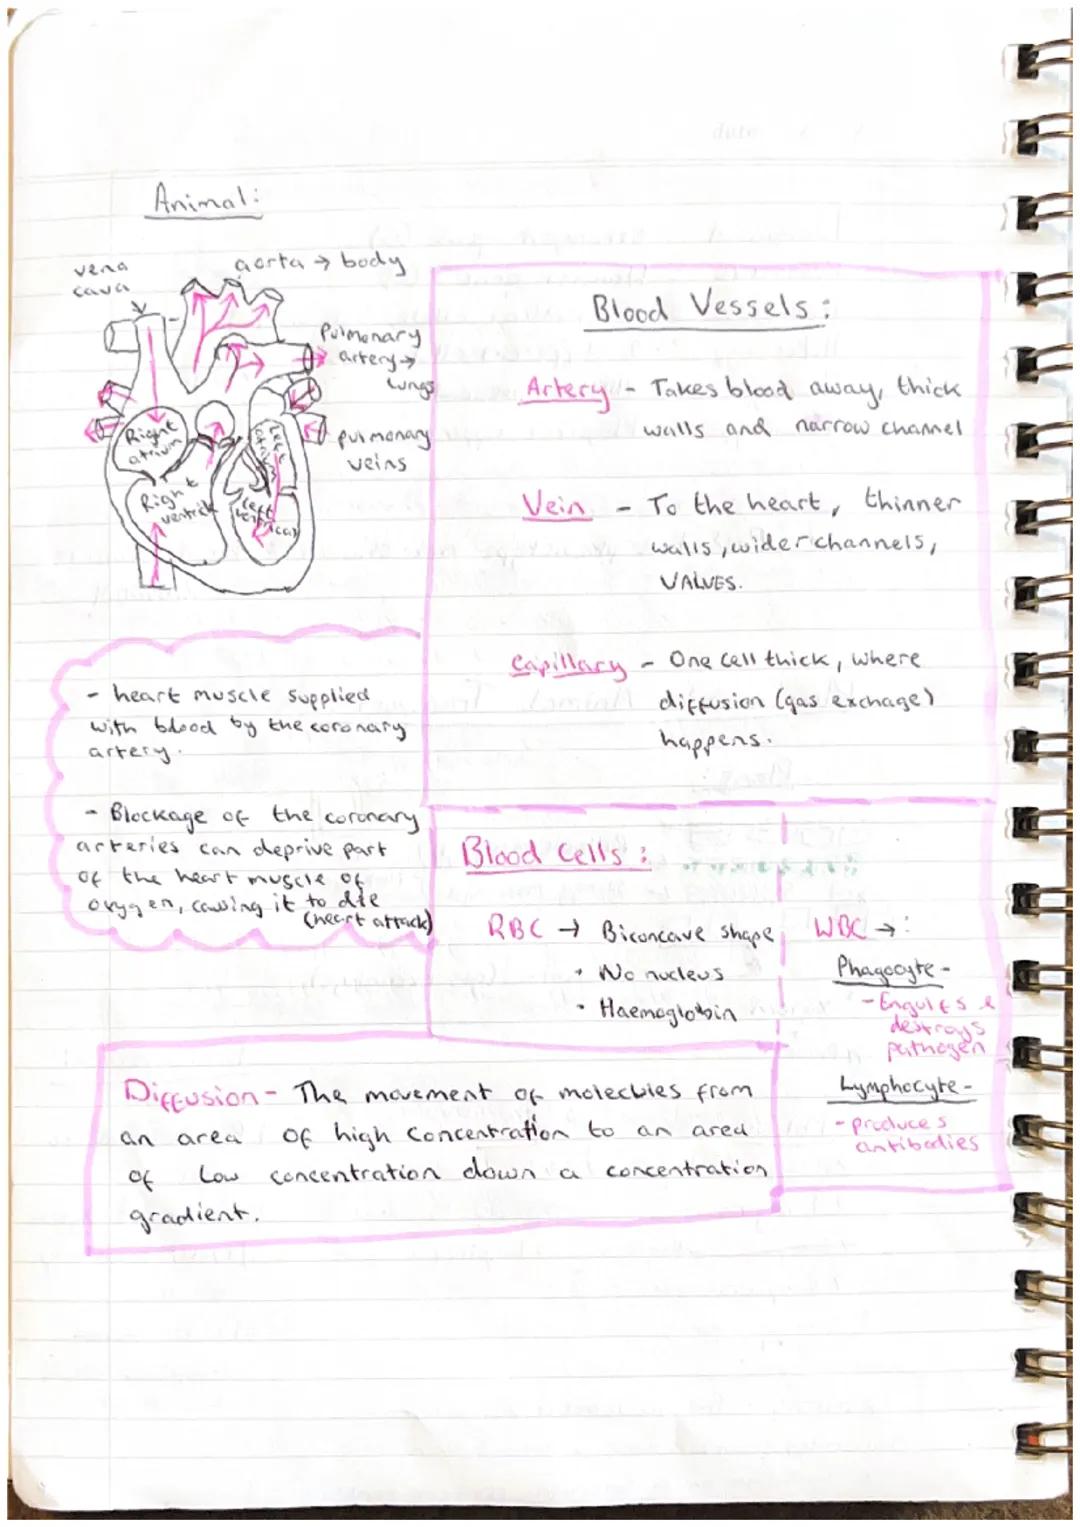 Animal:
vena
cava
aorta → body
Pulmonary
artery →
Lungs
pulmonary
veins
Right
atrium
Left
atrium
Right
ventricle
Left
Blood Vessels:
Artery - Takes blood away, thick
walls and narrow channel
Vein - To the heart, thinner
walls, wider channels,
VALVES.
Capillary - One cell thick, where
diffusion (gas exchage)
happens.
- heart muscle supplied
with blood by the coronary
artery.
- Blockage of the coronary
arteries can deprive part
of the heart muscle of
oxygen, causing it to die
(heart attack)
Blood Cells:
RBC → Biconcave shape
• No nucleus
• Haemoglobin
WBC →:
Phagocyte -
- Engulfs &
destroys
pathogen
Lymphocyte -
- produces
antibodies
Diffusion - The movement of molecules from
an area of high concentration to an area
of Low concentration down a concentration
gradient.